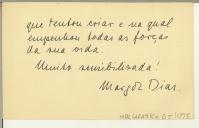 que tentou criar e na qual
empenhou todas as forças
da sua vida.
Muito sensibilizada!
Margôt Dias.